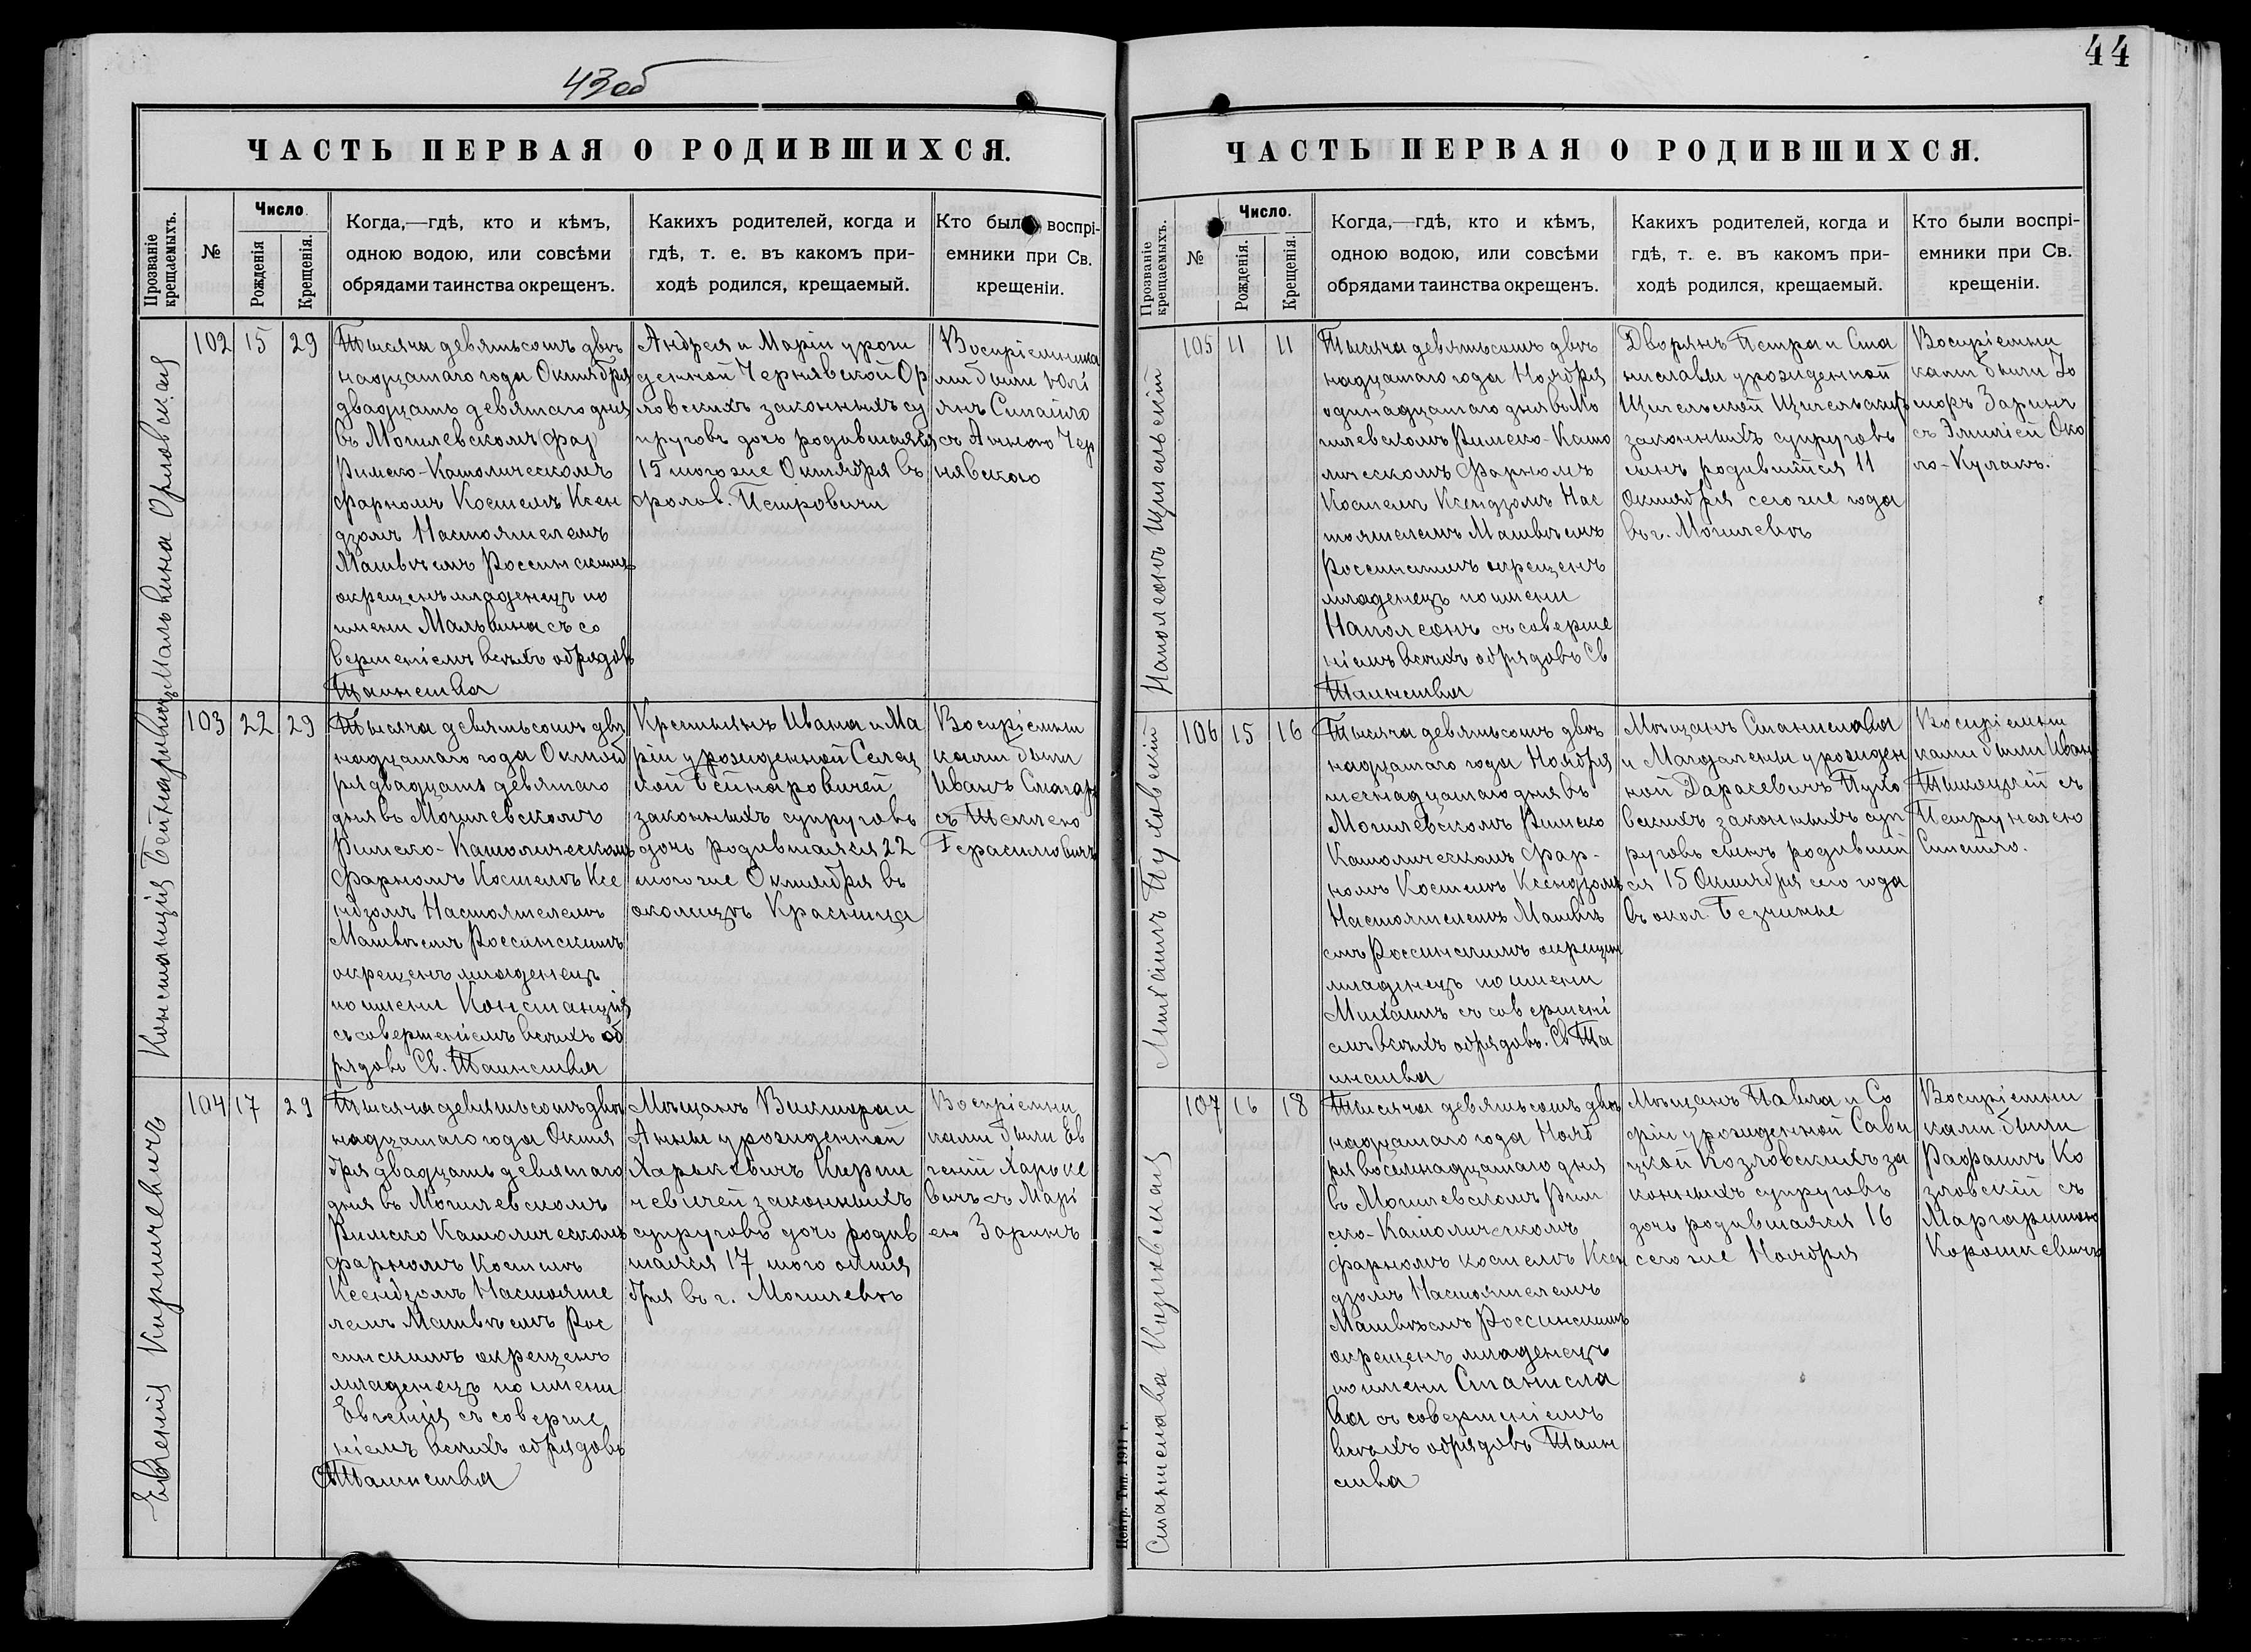 43об
ЧАСТЬ ПЕРВАЯ О РОДИВШИХСЯ.
Прозваніе крещаемыхъ.
№
Число.
Рожденія
Крещенія.
Когда,—гдѣ, кто и кѣмъ,
одною водою, или совсѣми
обрядами таинства окрещенъ.
Какихъ родителей, когда и
гдѣ, т. е. въ какомъ при-
ходѣ родился, крещаемый.
Кто были воспрі-
емники при Св.
крещеніи.
Мальвина Орловская
102 15 29
Тысяча девятьсотъ двѣ
надцатаго года Октября
двадцать девятаго дня
въ Могилевскомъ (фар)
Римско-Католическомъ
фарномъ Костелѣ Ксен
дзомъ Настоятелемъ
Матвѣемъ Россинскимъ
окрещенъ младенецъ по
имени Мальвина съ со
вершеніемъ всѣхъ обрядовъ
Таинства
Андрея и Маріи урож
денной Чернявской Ор
ловскихъ законныхъ су
пруговъ дочь родившаяся
15 того же Октября въ
фольв. Петровичи
Воспріемника
ми были Юлі
янъ Спайло
съ Анною Чер
нявскою
Констанція Бейнаровичъ
103 22 29
Тысяча девятьсотъ двѣ
надцатаго года Октяб
ря двадцать девятаго
дня въ Могилевскомъ
Римско-Католическомъ
Фарномъ Костелѣ Ксе
ндзомъ Настоятелемъ
Матвѣемъ Россинскимъ
окрещенъ младенецъ
по имени Констанція
съ совершеніемъ всѣхъ об
рядовъ Св. Таинства
Крестьянъ Ивана и Ма
ріи урожденной
Бейнаровичей
законныхъ супруговъ
дочь родившаяся 22
того же Октября въ
околицѣ Красница
Воспріемни
ками были
Иванъ
съ Теклею
Герасимовичъ
Евгенія Киричевичъ
104 17 29
Тысяча девятьсотъ двѣ
надцатаго года Октя
бря двадцать девятаго
дня въ Могилевскомъ
Римско Католическомъ
фарномъ Костелѣ
Ксендзомъ Настояте
лемъ Матвѣемъ Рос
синскимъ окрещенъ
младенецъ по имени
Евгенія съ соверше
ніемъ всѣхъ обрядовъ
Таинства
Мѣщанъ Виктора и
Анны урожденной
Харькевичъ Кири
чевичей законныхъ
супруговъ дочь родив
шаяся 17 того октя
бря въ г. Могилевѣ
Воспріемни
ками были Ев
геній Харьке
вичъ съ Марі
ею Заринъ
44
ЧАСТЬ ПЕРВАЯ О РОДИВШИХСЯ.
Прозваніе крещаемыхъ.
№
Число.
Рожденія.
Крещенія.
Когда,—гдѣ, кто и кѣмъ,
одною водою, или совсѣми
обрядами таинства окрещенъ.
Какихъ родителей, когда и
гдѣ, т. е. въ какомъ при-
ходѣ родился, крещаемый.
Кто были воспрі-
емники при Св.
крещеніи.
Наполеонъ Щигельскій
105 11 11
Тысяча девятьсотъ двѣ
надцатаго года Ноября
одинадцатаго дня въ Мо
гилевскомъ Римско-Като
лическомъ Фарномъ
Костелѣ Ксендзомъ Нас
тоятелемъ Матвѣемъ
Россинскимъ окрещенъ
младенецъ по имени
Наполеонъ съ соверше
ніемъ всѣхъ обрядовъ Св
Таинства
Дворянъ Петра и Ста
ниславы урожденной
Щигельской Щигельскихъ
законныхъ супруговъ
сынъ родившійся 11
Октября сего же года
въ г. Могилевѣ
Воспріемни
ками были
Заринъ
съ Эмиліей Око
ло-Кулакъ.
Михаилъ Пуховскій
106 15 16
Тысяча девятьсотъ двѣ
надцатаго года Ноября
шеснадцатаго дня въ
Могилевскомъ Римско
Католическомъ Фар-
номъ Костелѣ Ксендзомъ
Настоятелемъ Матвѣ
емъ Россинскимъ окрещен
младенецъ по имени
Михаилъ съ совершені
емъ всѣхъ обрядовъ. Св Та
инства
Мѣщанъ Станислава
и Магдалены урожден
ной Дарасевичъ Пухо
вскихъ законныхъ суп
руговъ сынъ родивший
ся 15 Октября сего года
въ окол. Безчинье
Воспріемни
ками были Иван
съ
Петрунелею
Спайло.
Станислава Козловская
107 16 18
Тысяча девятьсотъ двѣ
надцатаго года Нояб
ря восемнадцатаго дня
въ Могилевскомъ Рим
ско-Католическомъ
фарномъ костелѣ Ксен
дзомъ Настоятелемъ
Матвѣемъ Россинскимъ
окрещенъ младенецъ
по имени Станисла
ва съ совершеніемъ
всѣхъ обрядовъ Таин
ства
Мѣщанъ Павла и Со
фіи урожденной Сави
цкой Козловскихъ за
конныхъ супруговъ
дочь родившаяся 16
сего же Ноября
Воспріемни
ками были
Рафаилъ Ко
зловскій съ
Маргаритою
Корошкевичъ
Центр. Тип. 1911 г.